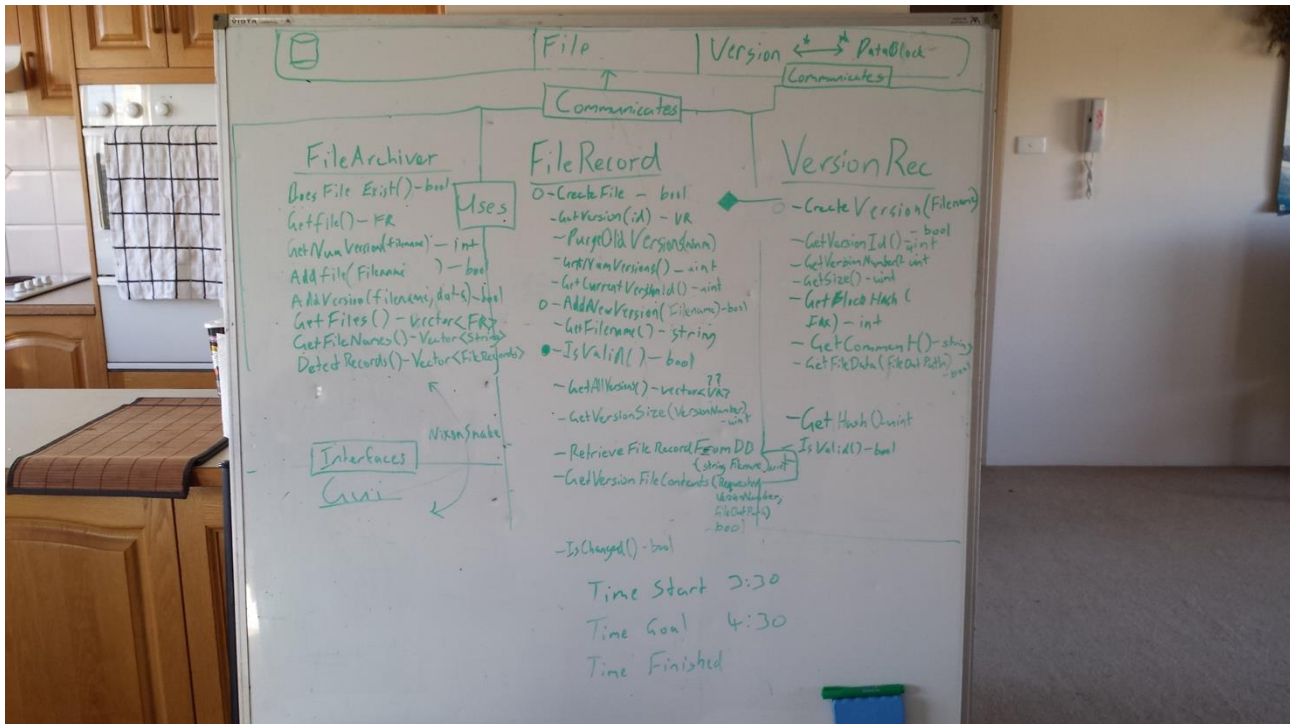 File
Version * * DataBlock
Communicates
Communicates
FileArchiver
Does File Exist() - bool
Getfile() - FR
GetNumVersions(filename) - int
Addfile(Filename ) - bool
AddVersion(filename, data) - bool
GetFiles() - vector<FR>
GetFileNames() - Vector<String>
DetectRecords() - Vector<FileRecords>
Uses
Interfaces
Gui
FileRecord
O - CreateFile - bool
- GetVersion(id) - VR
- PurgeOldVersions(num)
- GetNumVersions() - uint
- GetCurrentVersionId() - uint
O - AddNewVersion(Filename) - bool
- GetFilename() - string
- IsValid() - bool
??
- GetAllVersions() - vector<VR>
- GetVersionSize(VersionNumber)
- uint
- Retrieve File Record From DD
(string Filename) uint
- GetVersionFileContents(Requested
VersionNumber,
FileOutPath)
- bool
- IsChanged() - bool
Time Start 3:30
Time Goal 4:30
Time Finished
VersionRec
O - CreateVersion(Filename)
- bool
- GetVersionId() - uint
- GetVersionNumber() - uint
- GetSize() - uint
- GetBlockHash(
) - int
- GetComment() - string
- GetFileData(FileOutPath)
- bool
- GetHash() uint
- IsValid() - bool